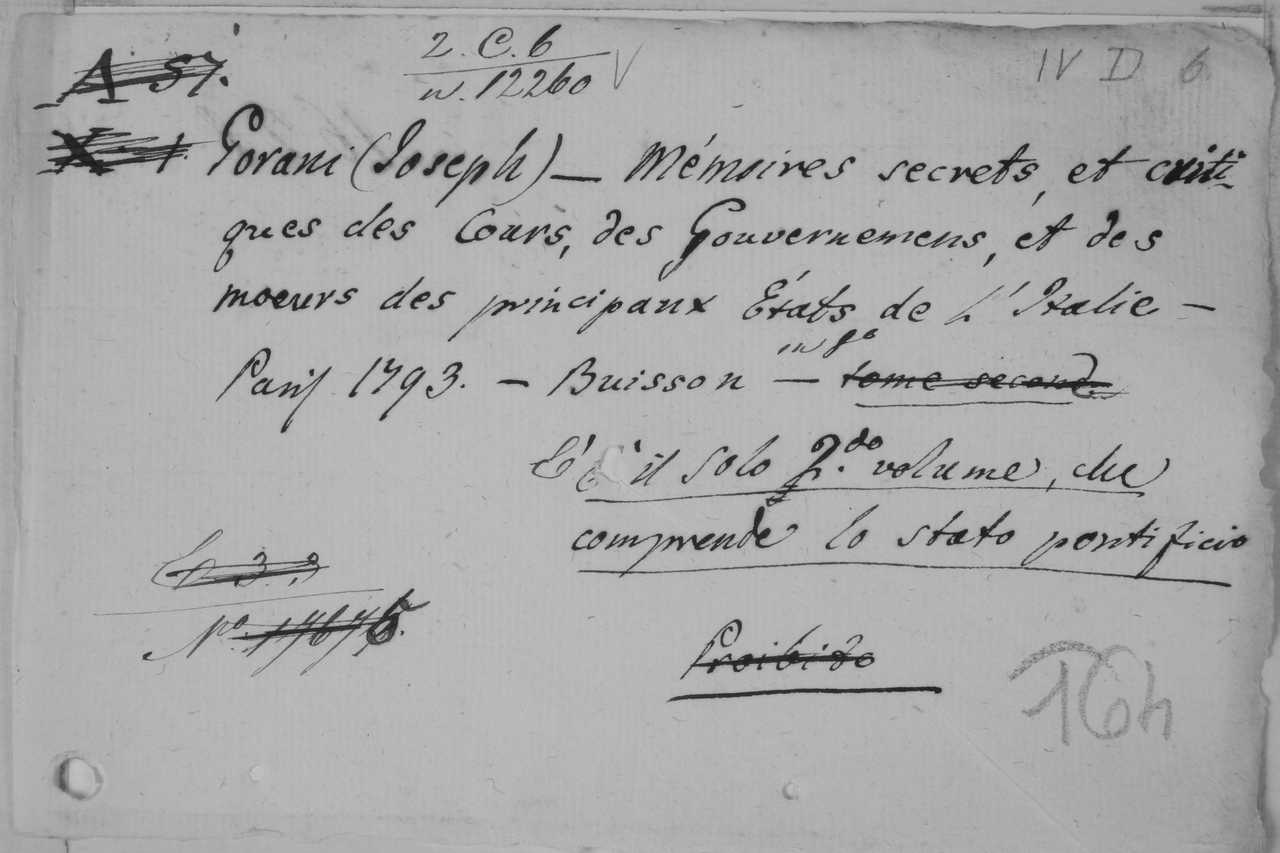 2. C. 6
n. 12260
IV D 6
A 57.
X 1
Gorani (Joseph) — Mémoires secrets, et criti-
ques des Cours, des Gouvernemens, et des
moeurs des principaux États de L'Italie —
in 8º
Paris 1793. — Buisson — tome second
E' il solo 2.do volume, che
comprende lo stato pontificio
Nº. 17676.
Proibito